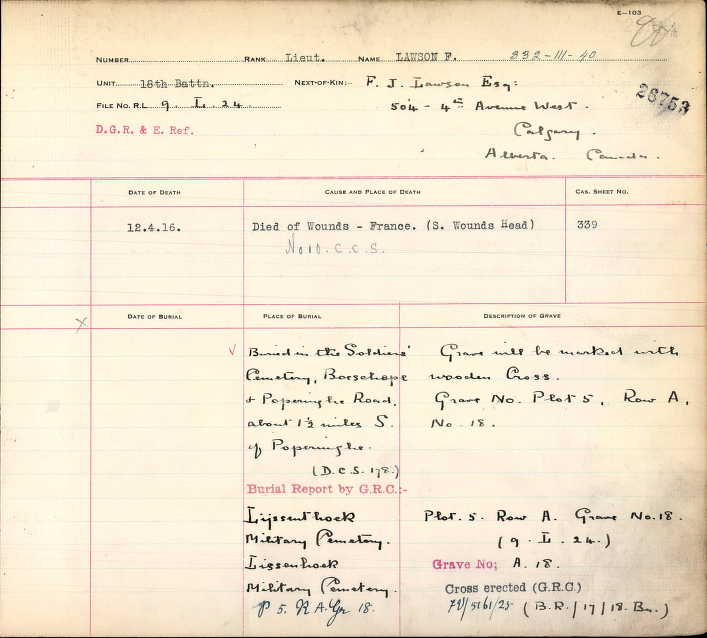 E—103
NUMBER RANK Lieut. NAME LAWSON F. 332-III-40
UNIT 18th Battn. NEXT-OF-KIN:- F. J. Lawson Esq:
FILE NO. R.L 9. L. 24 504 - 4th Avenue West.
26753
D.G.R. & E. Ref. Calgary.
Alberta. Canada.
DATE OF DEATH CAUSE AND PLACE OF DEATH CAS. SHEET NO.
12.4.16. Died of Wounds - France. (S. Wounds Head) 339
No 10. C.C.S.
DATE OF BURIAL PLACE OF BURIAL DESCRIPTION OF GRAVE
X
Buried in the Soldiers' Grave will be marked with
Cemetery, Boeschepe wooden Cross.
& Poperinghe Road, Grave No. Plot 5, Row A,
about 1½ miles S. No. 18.
of Poperinghe.
(D.C.S. 178.)
Burial Report by G.R.C.:-
Lijssenthoek Plot. 5. Row A. Grave No. 18.
Military Cemetery. (9. L. 24.)
Lissenhoek Grave No; A. 18.
Military Cemetery. Cross erected (G.R.C.)
P 5. R A. Gr 18. (B.R./17/18. Bn.)